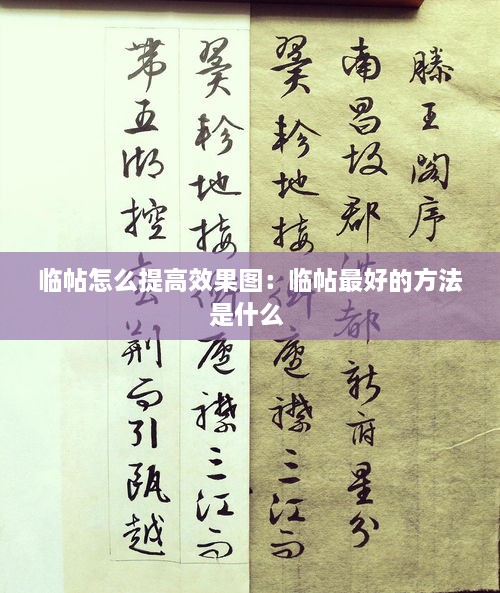 滕王阁序
南昌故郡洪都新府星分
翼軫地接衡廬襟三江而
翼軫地接衡廬襟三江而
帶五湖控荆而引甌越
临帖怎么提高效果图：临帖最好的方法
是什么